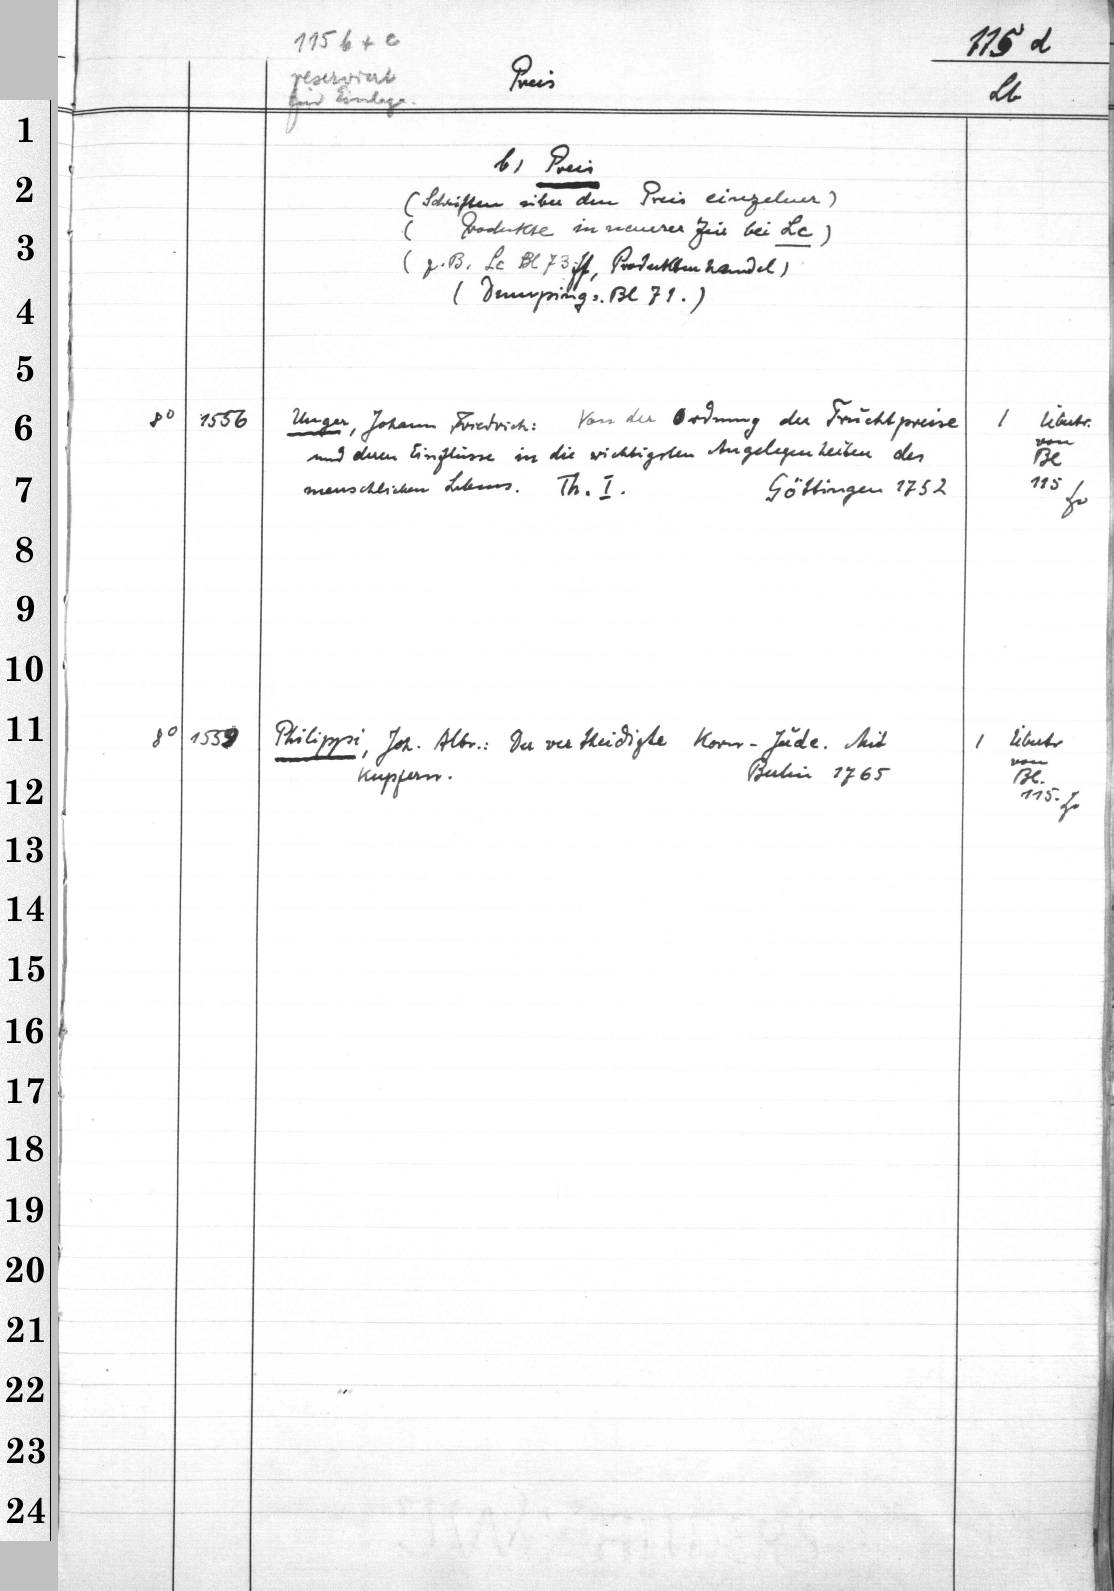 115 b + c
reserviert
für Einlage.
Preis
115 d
Lb
b) Preis
(Schriften über den Preis einzelner)
( Produkte in neuerer Zeit bei Lc )
( z.B. Lc Bl 73 ff, Produktenhandel)
( Dumping s. Bl 71. )
8° 1556 Unger, Johann Friedrich: Von der Ordnung der Früchtpreise 1 Übertr.
und deren Einflüsse in die wichtigsten Angelegenheiten des von Bl
menschlichen Lebens. Th. I. Göttingen 1752 115
8° 1559 Philippi, Joh. Albr.: Der vertheidigte Korn-Jude. Mit 1 Übertr
Kupfern. Berlin 1765 von Bl.
115.
1
2
3
4
5
6
7
8
9
10
11
12
13
14
15
16
17
18
19
20
21
22
23
24